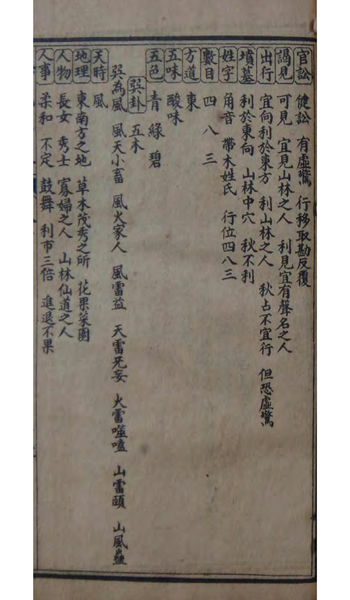 官訟 健訟 有虛驚 行移取勘反覆
謁見 可見 宜見山林之人 利見宜有聲名之人
出行 宜向利於東方 利山林之人 秋占不宜行 但恐虛驚
墳墓 利於東向 山林中穴 秋不利
姓字 角音 帶木姓氏 行位四八三
數目 四 八 三
方道 東
五味 酸味
五色 青 綠 碧
巽卦 五木
巽為風 風天小畜 風火家人 風雷益 天雷无妄 火雷噬嗑 山雷頤 山風蠱
天時 風
地理 東南方之地 草木茂秀之所 花果菜園
人物 長女 秀士 寡婦之人 山林仙道之人
人事 柔和 不定 鼓舞 利市三倍 進退不果